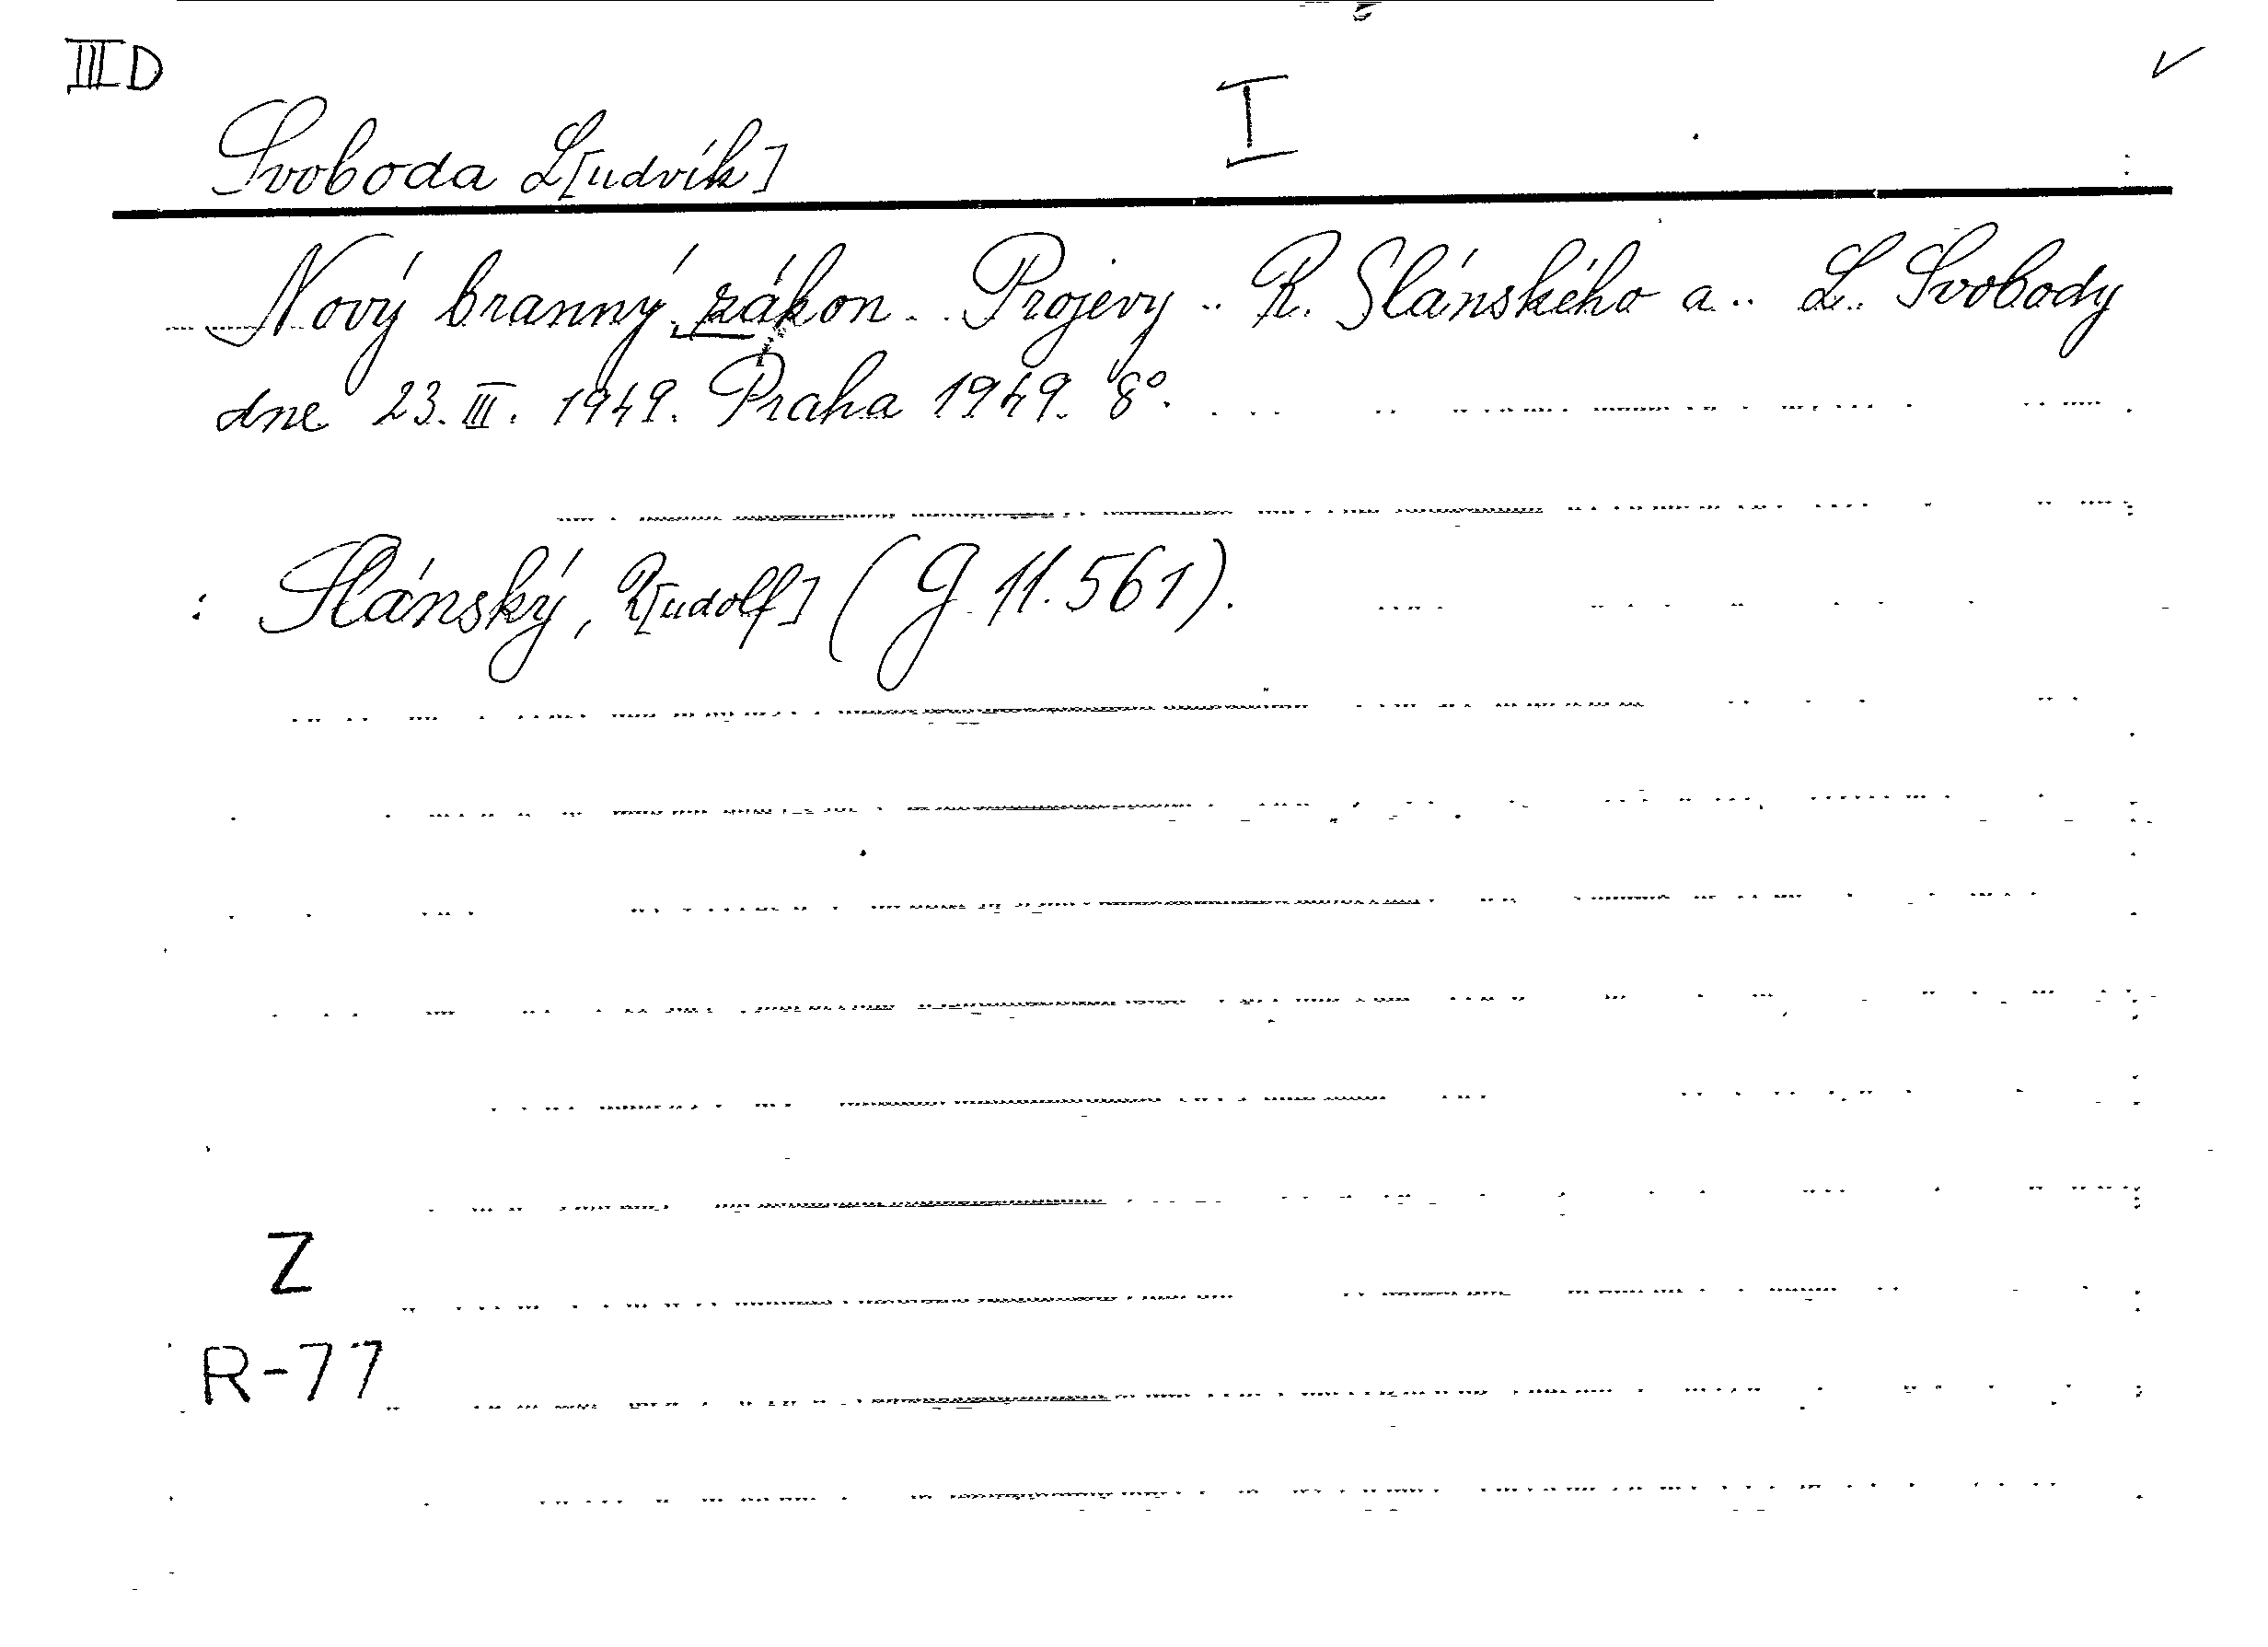 III D
I
Svoboda L[udvík]
Nový branný zákon. . Projevy .. R. Slánského a .. L. Svobody
dne 23. III. 1949. Praha 1949. 8°.
: Slánský, R[udolf] (G 11.561).
Z
R-77